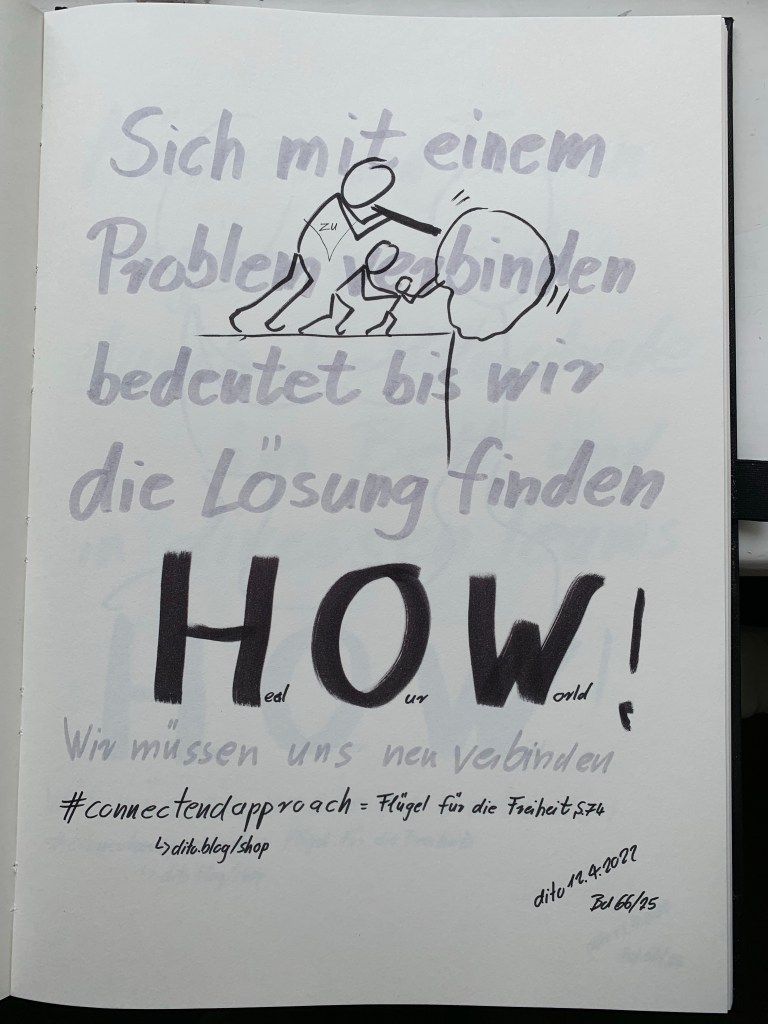 Sich mit einem
zu
Problem verbinden
bedeutet bis wir
die Lösung finden
HOW!
Heal Our World
Wir müssen uns neu verbinden
#connectendapproach = Flügel für die Freiheit, S.74
↳dito.blog/shop
dito 12.4.2022
Bd 66/25